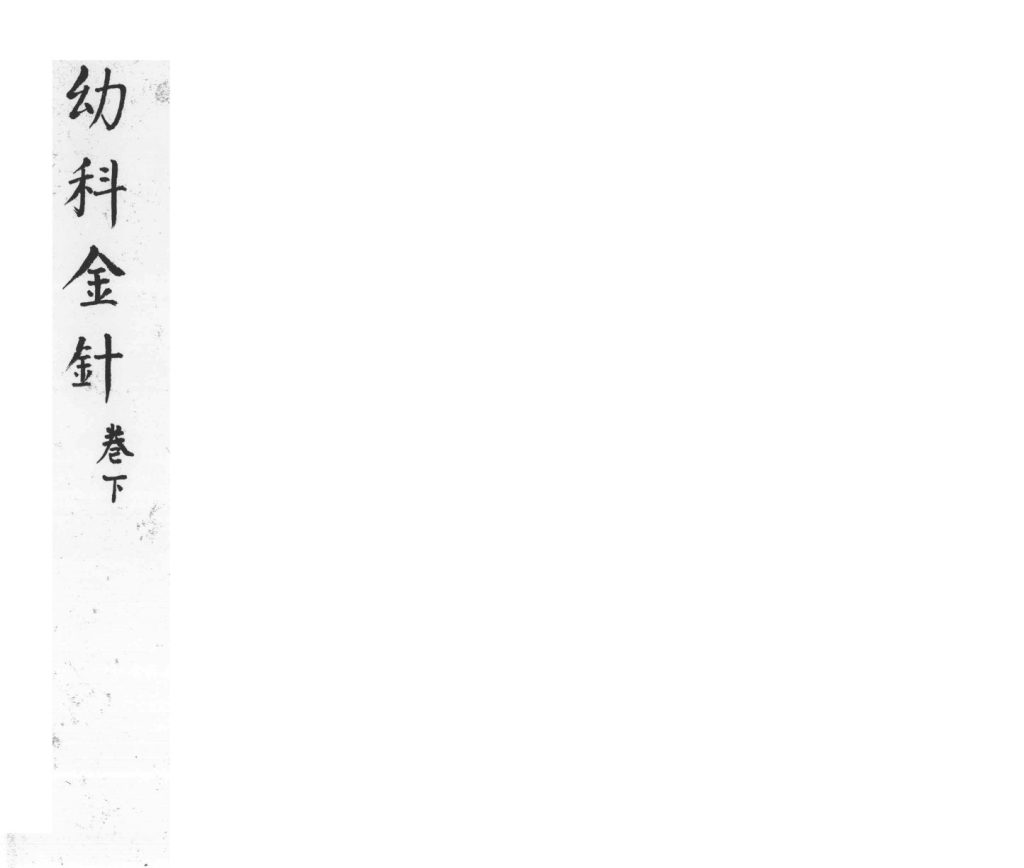 幼科金針
卷下